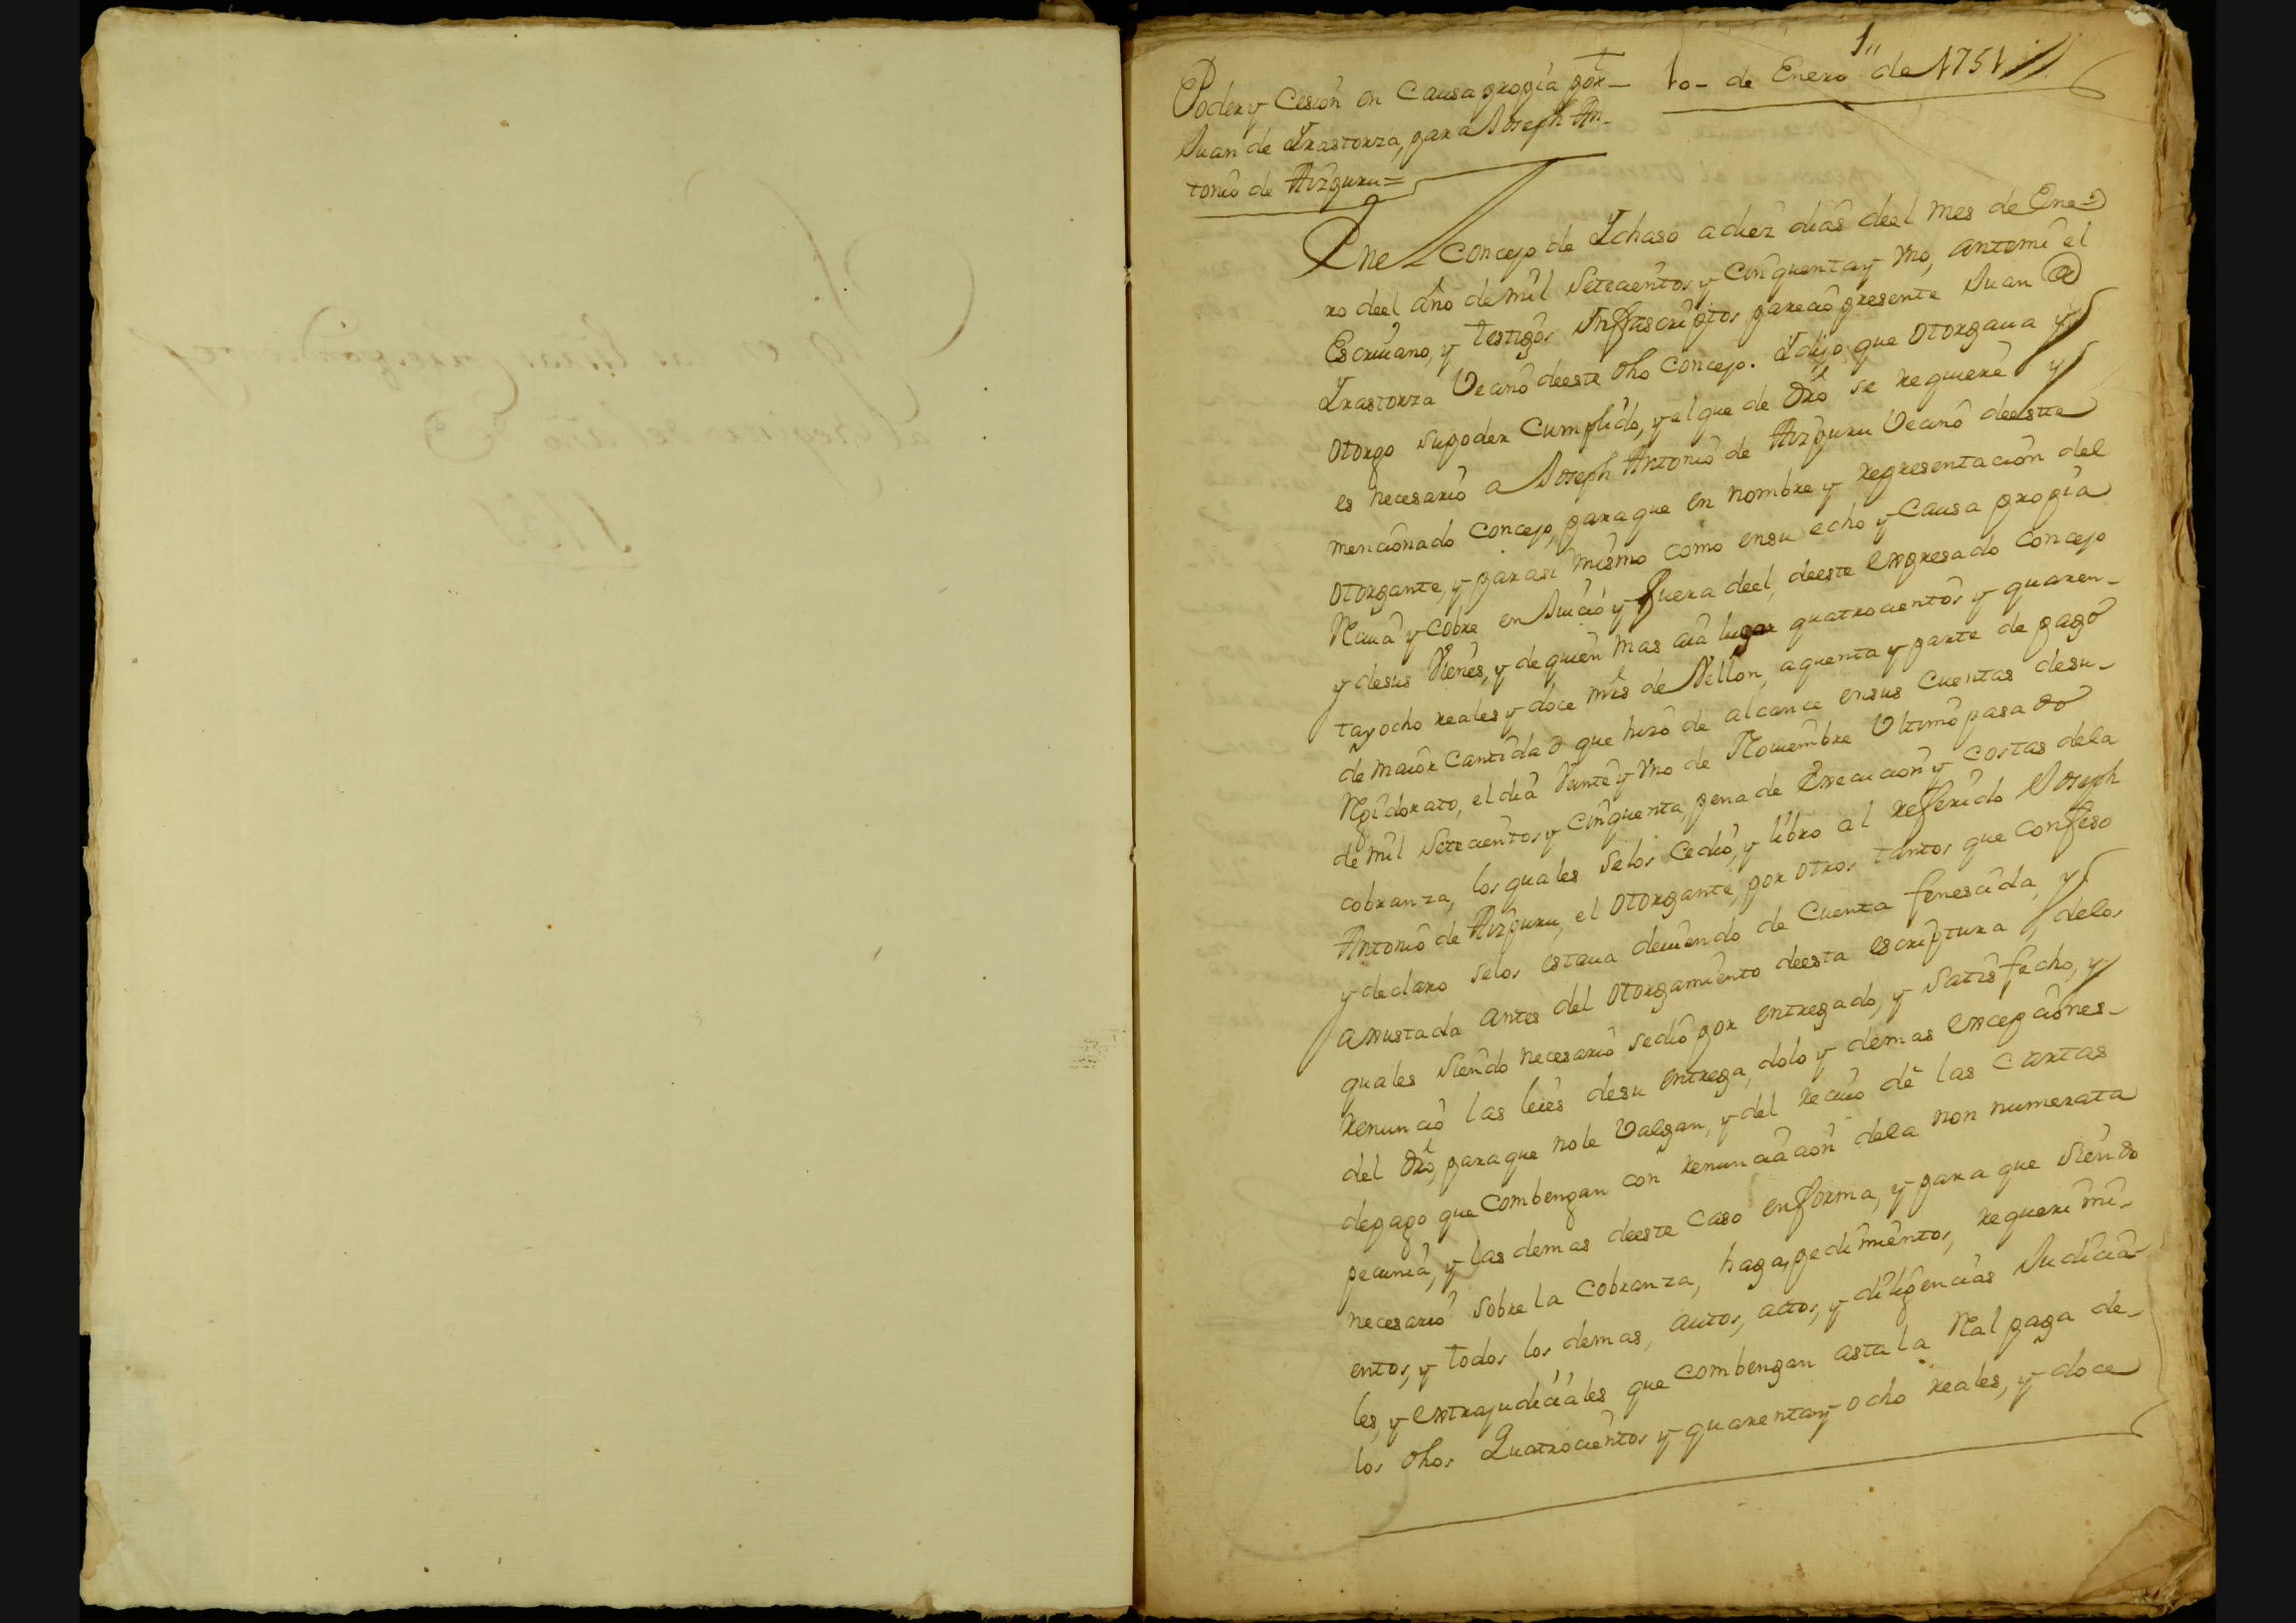 1,,
10- de Enero de 1751
Poder y Cesion en Causa propia por
Juan de Yrastorza, para Joseph An-
tonio de Aizpuru=
Enel Concejo de Ychaso a diez dias deel mes de Ene-
ro deel año de mil Setecientos y Cinquenta y Vno, antemi el
Escriuano, y testigos Infrascriptos parecio presente Juan de
Yrastorza Vecino deeste dho Concejo. Y dijo que otorgaua y
otorgo supoder Cumplido, y el que de dro se requiere y
es necesario a Joseph Antonio de Aizpuru Vecino deeste
mencionado Concejo, paraque en nombre y representacion del
otorgante, y parasi mismo como ensu echo y Causa propia
Rciua y cobre en Juicio y fuera deel, deeste expresado Concejo
y desus Vienes, y de quien mas aia lugar quatrocientos y quaren-
tay ocho reales y doce mrs de Vellon, aquenta y parte de pago
de maior Cantidad que hizo de alcance ensus Cuentas desu
Rgidorato, el dia Veinte y Vno de Nouiembre Vltimo pasado
de mil Setecientos y Cinquenta, pena de Execucion y costas dela
cobranza, los quales selos Cedio, y libro al referido Joseph
Antonio de Aizpuru, el otorgante, por otros tantos que confeso
y declaro selos estaua deuiendo de Cuenta fenescida, y
axustada antes del otorgamiento deesta escriptura, delos
quales siendo necesario sedio por entregado, y satisfecho, y
renuncio las leies desu entrega, dolo y demas excepciones
del dro, paraque nole Valgan, y del reciuo de las Cartas
depago que Combengan con renunciacion dela non numerata
pecunia, y las demas deeste Caso enforma, y para que siendo
necesario sobre la Cobranza, haga pedimientos, requerimi-
entos, y todos los demas, autos, actos, y diligencias Judicia-
les, y extrajudiciales que combengan asta la Ral paga de-
los dhos Quatrocientos y quarentay ocho reales, y doce